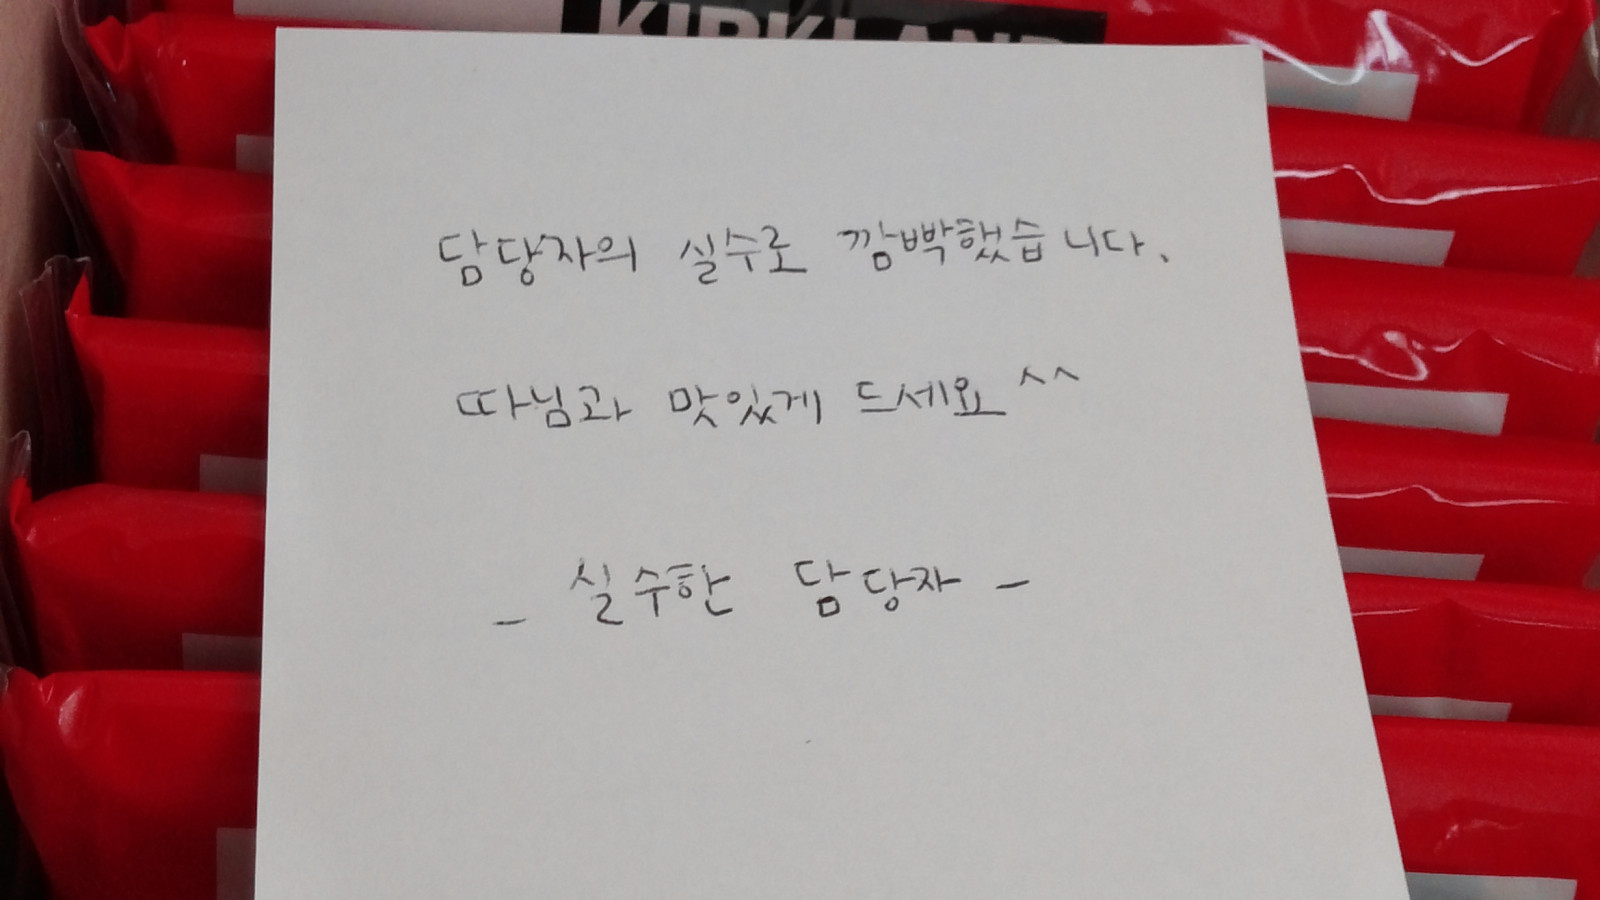 KIRKLAND
담당자의 실수로 깜빡했습니다.
따님과 맛있게 드세요^^
- 실수한 담당자 -